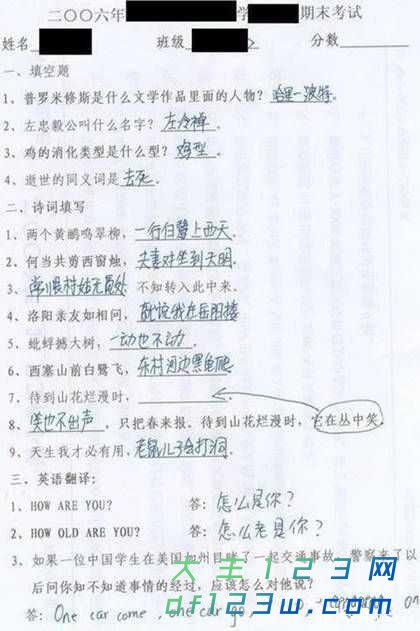 二〇〇六年 学 期末考试
姓名 班级 分数
一、填空题
1、普罗米修斯是什么文学作品里面的人物？哈里一波特。
2、左忠毅公叫什么名字？左冷禅。
3、鸡的消化类型是什么型？鸡型。
4、逝世的同义词是去死。
二、诗词填写
1、两个黄鹂鸣翠柳，一行白鹭上西天。
2、何当共剪西窗烛，夫妻对坐到天明。
3、常恨村姑无觅处 不知转入此中来。
4、洛阳亲友如相问，就说我在岳阳楼
5、蚍蜉撼大树，一动也不动。
6、西塞山前白鹭飞，东村河边黑龟爬
7、待到山花烂漫时，
8、笑也不出声，只把春来报。待到山花烂漫时，它在丛中笑。
9、天生我才必有用，老鼠儿子会打洞。
三、英语翻译：
1、HOW ARE YOU? 答：怎么是你？
2、HOW OLD ARE YOU? 答：怎么老是你？
3、如果一位中国学生在美国加州目睹了一起交通事故，警察来了以
后问你知不知道事情的经过，应该怎么对他说？
答：One car come, one car go on
大学123网
df123w.com